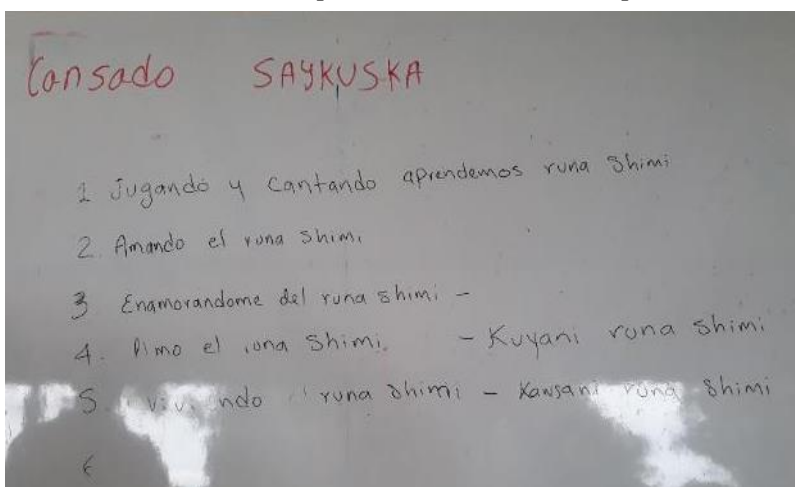 Cansado SAYKUSKA
1 Jugando y cantando aprendemos runa shimi
2. Amando el runa shimi
3 Enamorandome del runa shimi -
4. el shimi. - Kuyani runa shimi
5. runa shimi - Kawsani runa shimi
6